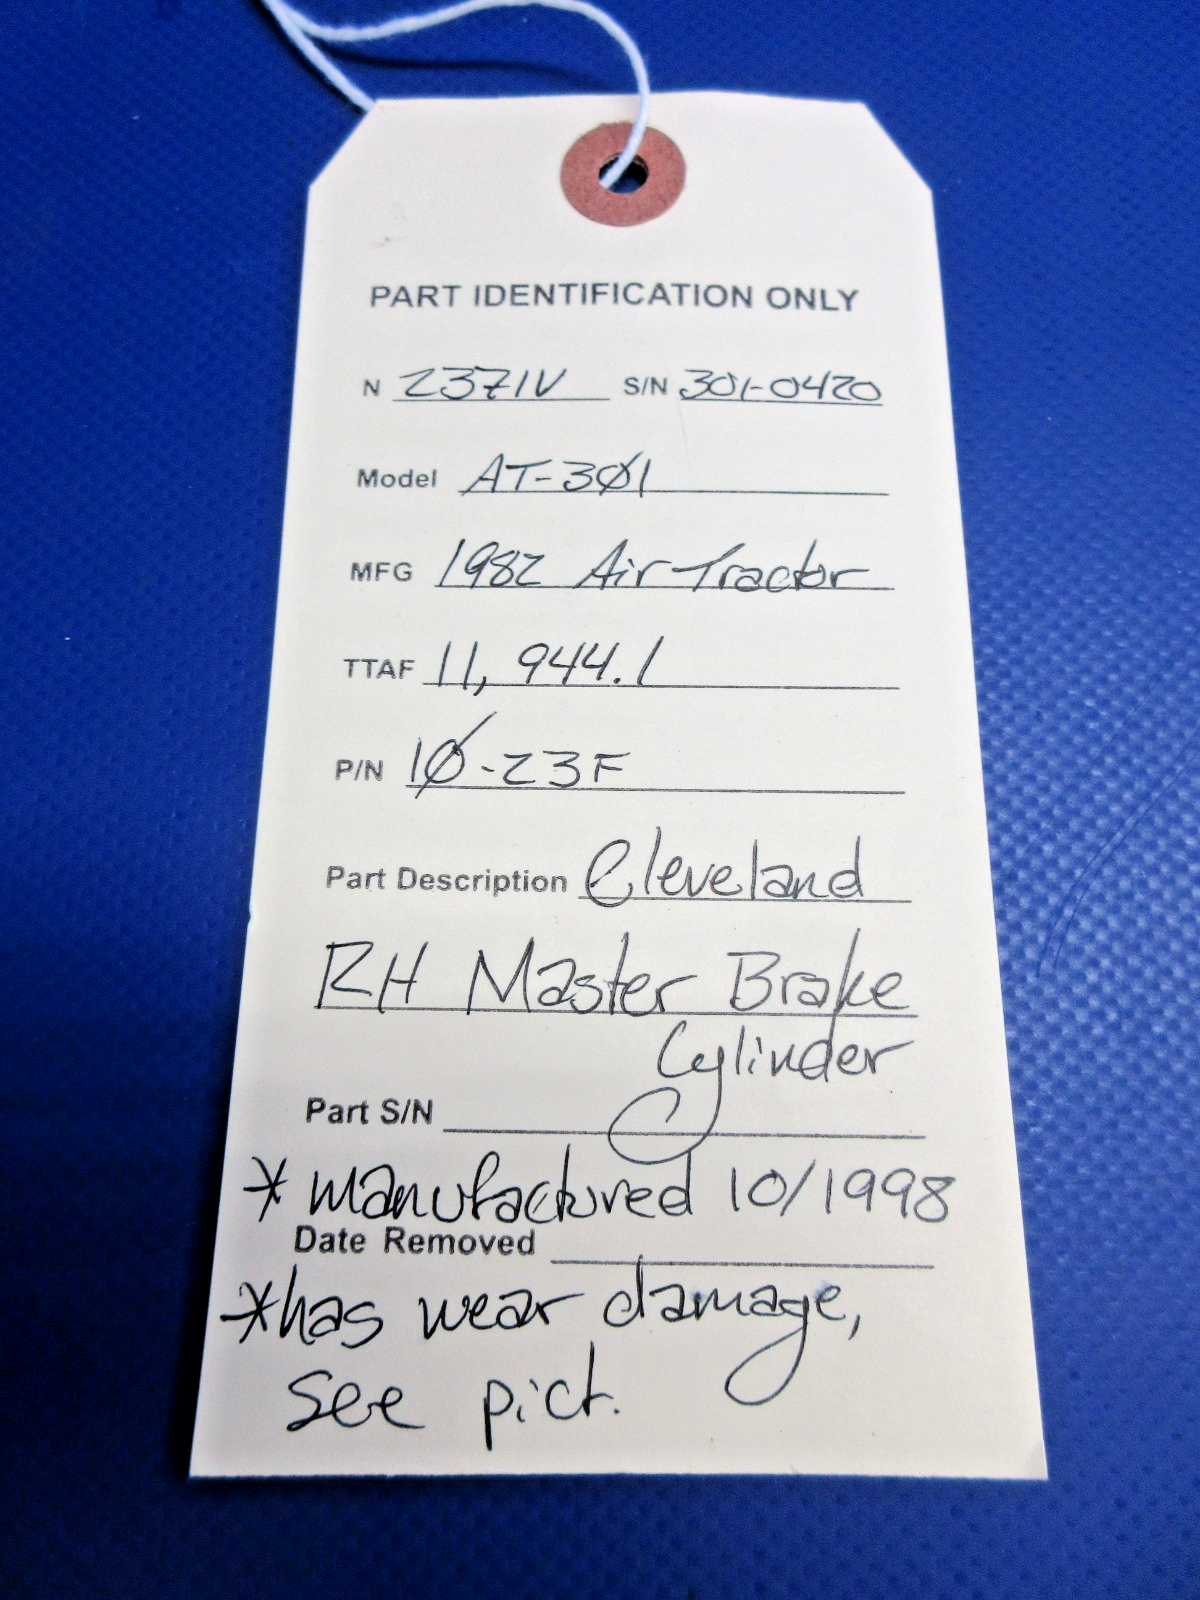 PART IDENTIFICATION ONLY
N 2371V S/N 301-0420
Model AT-301
MFG 1982 Air Tractor
TTAF 11,944.1
P/N 10-23F
Part Description Cleveland
RH Master Brake
Cylinder
Part S/N
* manufactured 10/1998
Date Removed
* has wear damage,
see pict.